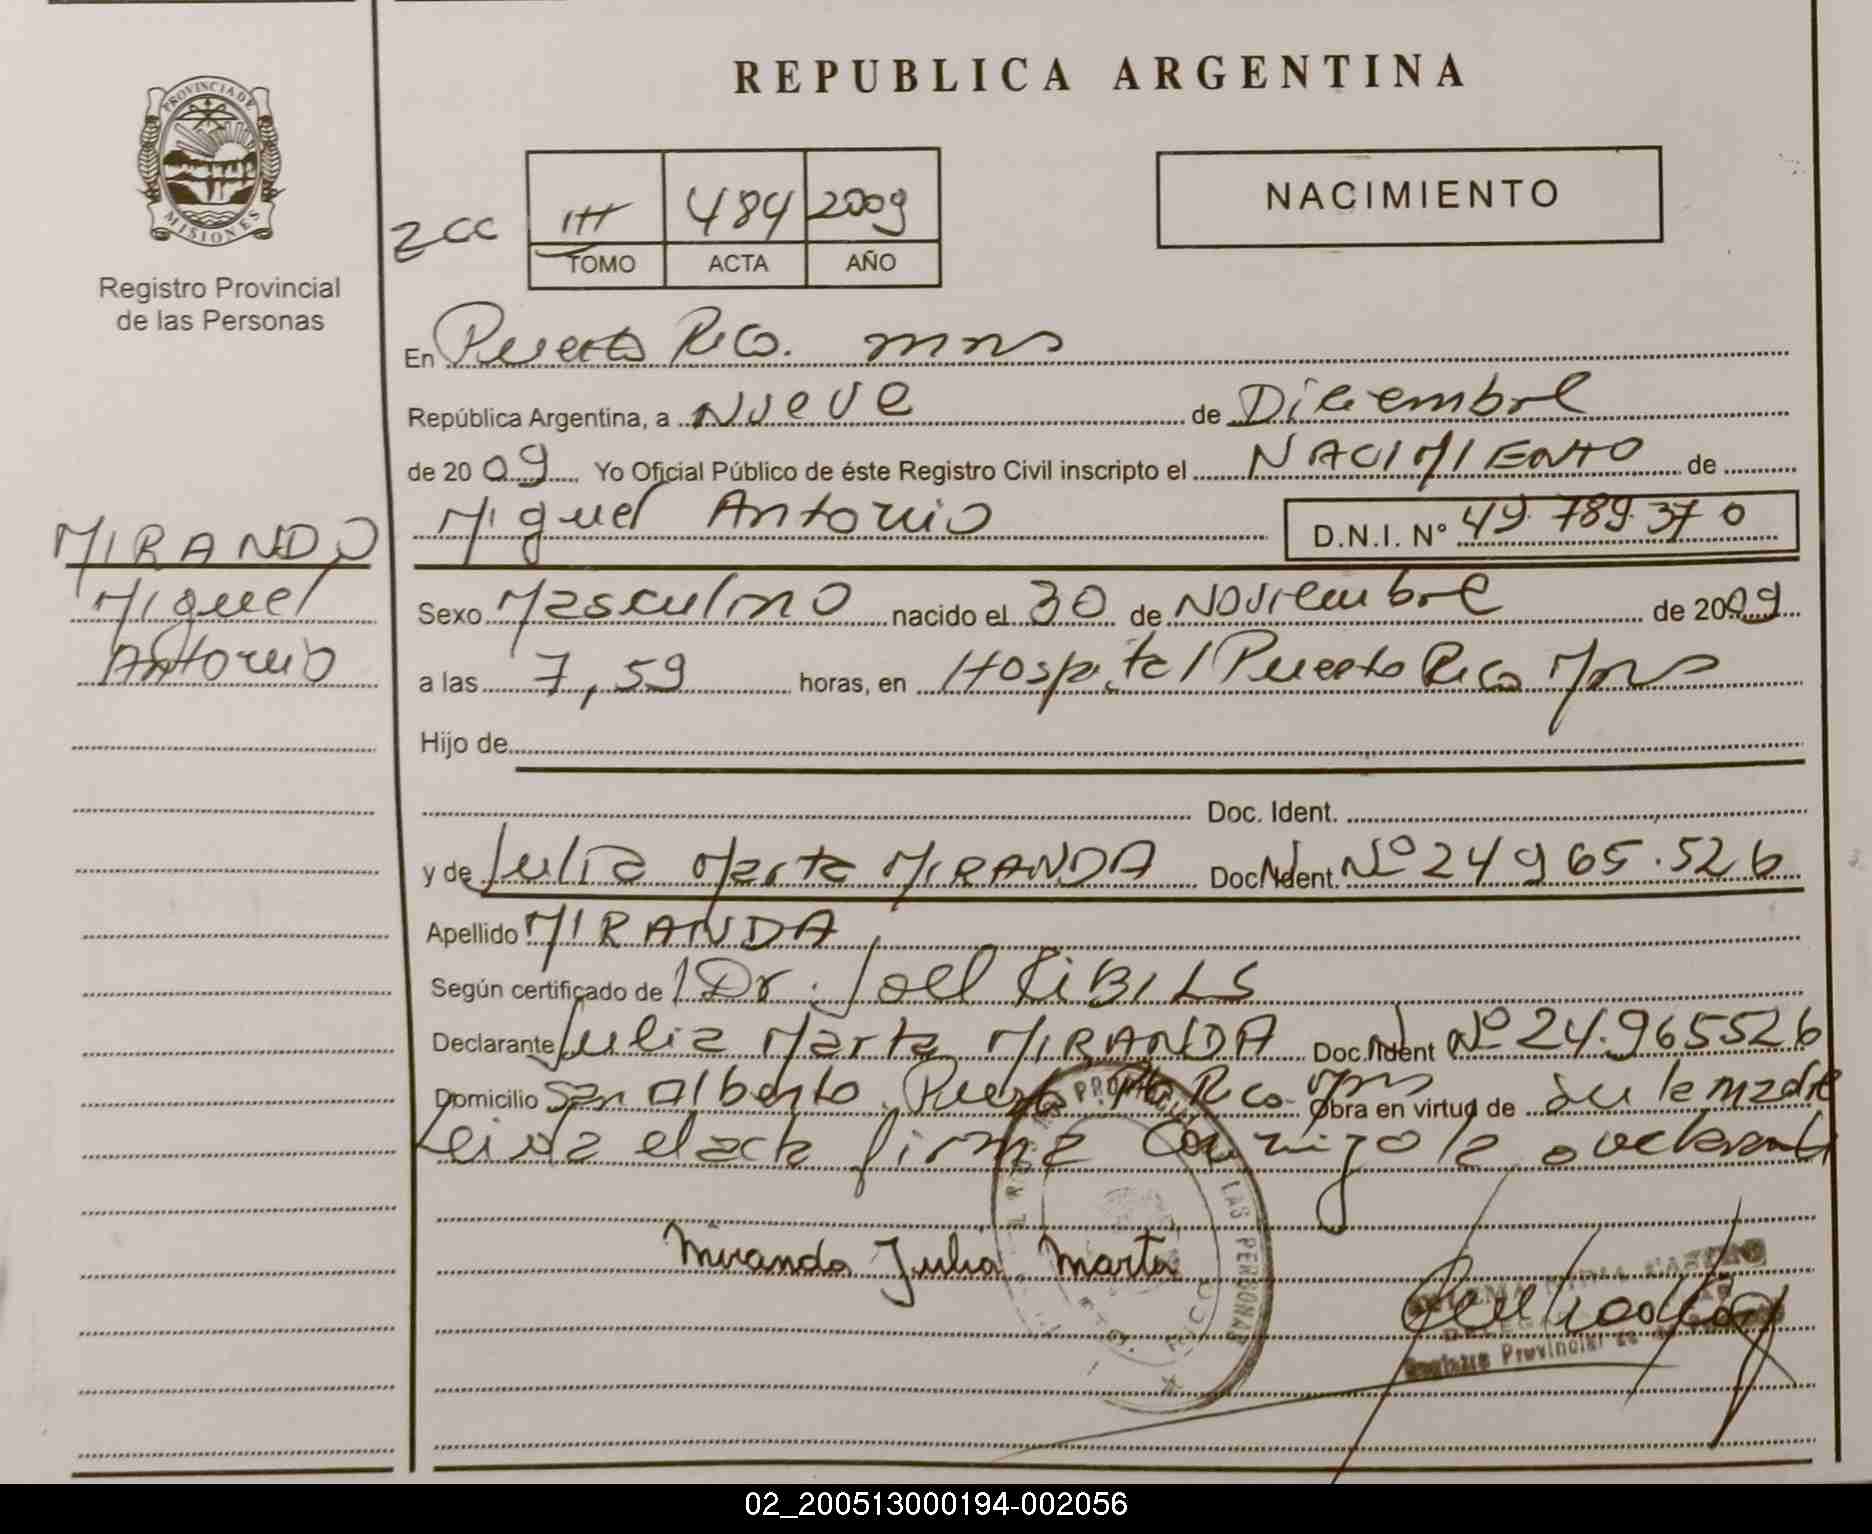 REPUBLICA ARGENTINA
PROVINCIA DE
MISIONES
Registro Provincial
de las Personas
2CC
III 484 2009
TOMO ACTA AÑO
NACIMIENTO
En Puerto Rico. mns
República Argentina, a Nueve de Diciembre
de 2009 Yo Oficial Público de éste Registro Civil inscripto el NACIMIENTO de
Miguel Antonio D.N.I. Nº 49.789.370
MIRANDA
Miguel
Antonio
Sexo Masculino nacido el 30 de Noviembre de 2009
a las 7,59 horas, en Hospital Puerto Rico Mns
Hijo de
Doc. Ident.
y de Julia Marta MIRANDA Doc. Ident. Nº 24 965.526
Apellido MIRANDA
Según certificado de Dr. Joel RIBILS
Declarante Julia Marta MIRANDA Doc. Ident Nº 24.965526
Domicilio San Alberto Puerto Rico. mns Obra en virtud de Su la madre
Leida el acta firma Conmigo la declarante
Miranda Julia Marta
LAS PERSONAS
PTO. RICO
Registro Provincial de
02_200513000194-002056